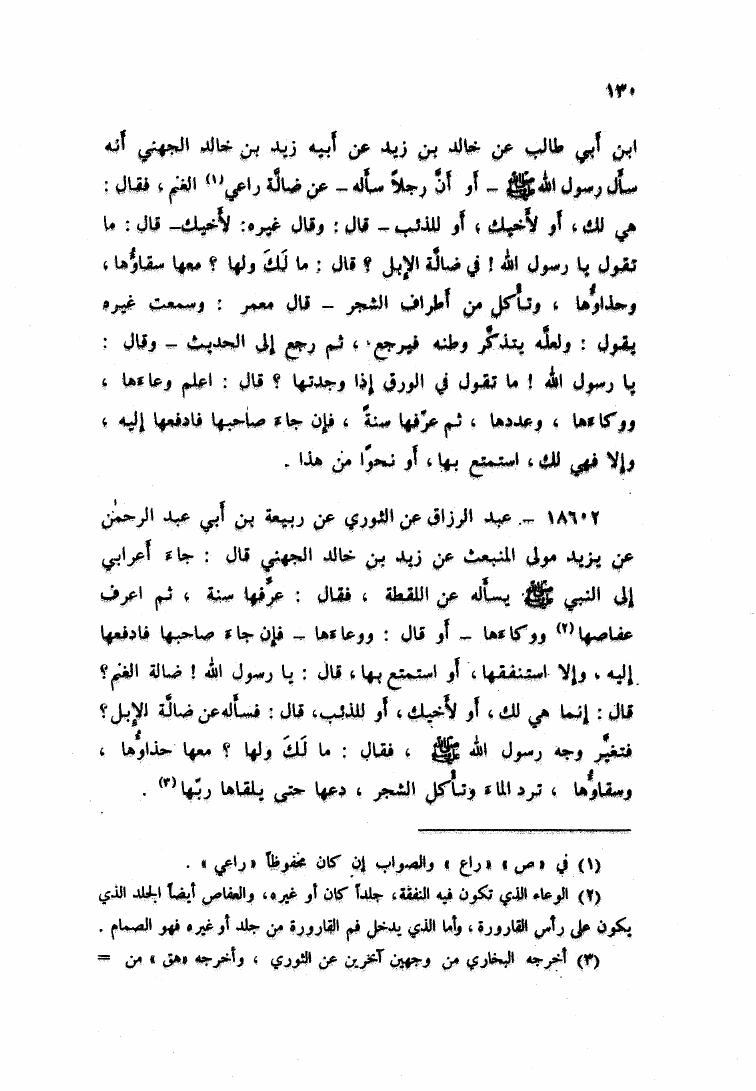 ١٣٠
ابن أبي طالب عن خالد بن زيد عن أبيه زيد بن خالد الجهني أنه
سأل رسول الله ﷺ – أو أنَّ رجلاً سأله – عن ضالَّة راعي(١) الغنم ، فقال :
هي لك، أو لأخيك ، أو للذئب – قال : وقال غيره: لأخيك– قال : ما
تقول يا رسول الله ! في ضالَّة الإبل ؟ قال : ما لَكَ ولها ؟ معها سقاؤُها ،
وحذاؤُها ، وتأْكل من أطراف الشجر – قال معمر : وسمعت غيره
يقول : ولعلَّه يتذكَّر وطنه فيرجع ، ثم رجع إلى الحديث – وقال :
يا رسول الله ! ما تقول في الورق إذا وجدتها ؟ قال : اعلم وعاءها ،
ووكاءها ، وعددها ، ثم عرّفها سنةً ، فإن جاءَ صاحبها فادفعها إليه ،
وإلا فهي لك، استمتع بها، أو نحوًا من هذا .
١٨٦٠٢ – عبد الرزاق عن الثوري عن ربيعة بن أبي عبد الرحمٰن
عن يزيد مولى المنبعث عن زيد بن خالد الجهني قال : جاءَ أعرابي
إلى النبي ﷺ يسأَله عن اللقطة ، فقال : عرِّفها سنة ، ثم اعرف
عفاصها(٢) ووكاءَها – أو قال : ووعاءَها – فإن جاءَ صاحبها فادفعها
إليه ، وإلا استنفقها، أو استمتع بها، قال : يا رسول الله ! ضالة الغنم؟
قال : إنما هي لك، أو لأخيك، أو للذئب، قال : فسأله عن ضالَّة الإبل؟
فتغيَّر وجه رسول الله ﷺ ، فقال : ما لَكَ ولها ؟ معها حذاؤُها ،
وسقاؤُها ، ترد الماءَ وتأْكل الشجر ، دعها حتى يلقاها ربّها(٣) .
(١) في «ص» «راع» والصواب إن كان محفوظاً «راعي» .
(٢) الوعاء الذي تكون فيه النفقة، جلداً كان أو غيره، والعفاص أيضاً الجلد الذي
يكون على رأس القارورة ، وأما الذي يدخل فم القارورة من جلد أو غيره فهو الصمام .
(٣) أخرجه البخاري من وجهين آخرين عن الثوري ، وأخرجه «هق» من =